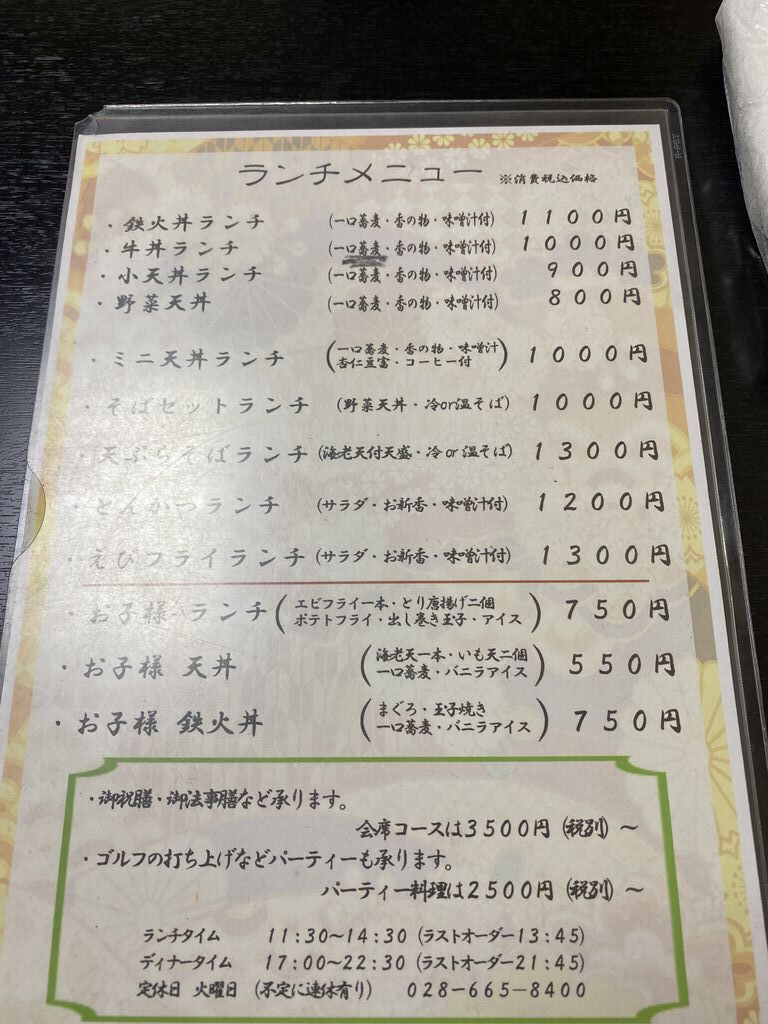 ランチメニュー ※消費税込価格
・鉄火丼ランチ (一口蕎麦・香の物・味噌汁付) 1100円
・牛丼ランチ (一口蕎麦・香の物・味噌汁付) 1000円
・小天丼ランチ (一口蕎麦・香の物・味噌汁付) 900円
・野菜天丼 (一口蕎麦・香の物・味噌汁付) 800円
・ミニ天丼ランチ (一口蕎麦・香の物・味噌汁 1000円
杏仁豆富・コーヒー付)
・そばセットランチ (野菜天丼・冷or温そば) 1000円
・天ぷらそばランチ (海老天付天盛・冷or温そば) 1300円
・とんかつランチ (サラダ・お新香・味噌汁付) 1200円
・えびフライランチ (サラダ・お新香・味噌汁付) 1300円
・お子様 ランチ (エビフライ一本・とり唐揚げ二個 750円
ポテトフライ・出し巻き玉子・アイス)
・お子様 天丼 (海老天一本・いも天二個 550円
一口蕎麦・バニラアイス)
・お子様 鉄火丼 (まぐろ・玉子焼き 750円
一口蕎麦・バニラアイス)
・御祝膳・御法事膳など承ります。
会席コースは3500円(税別)~
・ゴルフの打ち上げなどパーティーも承ります。
パーティー料理は2500円(税別)~
ランチタイム 11:30~14:30 (ラストオーダー13:45)
ディナータイム 17:00~22:30 (ラストオーダー21:45)
定休日 火曜日 (不定に連休有り) 028-665-8400